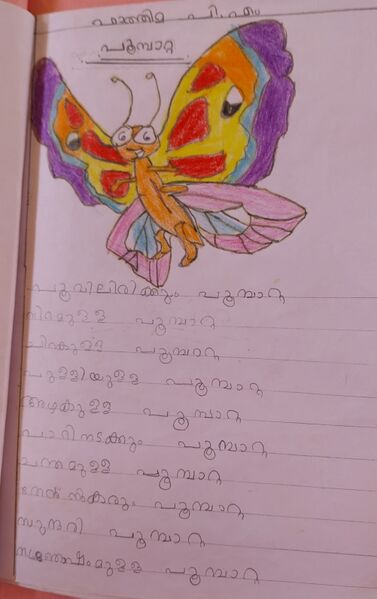 ഫാത്തിമ പി.എം
പൂമ്പാറ്റ
പൂവിലിരിക്കും പൂമ്പാറ്റ
നിറമുള്ള പൂമ്പാറ്റ
ചിറകുള്ള പൂമ്പാറ്റ
പുള്ളിയുള്ള പൂമ്പാറ്റ
അഴകുള്ള പൂമ്പാറ്റ
പാറിനടക്കും പൂമ്പാറ്റ
ചന്തമുള്ള പൂമ്പാറ്റ
പൂമ്പാറ്റ
സുന്ദരി പൂമ്പാറ്റ
പൂമ്പാറ്റ